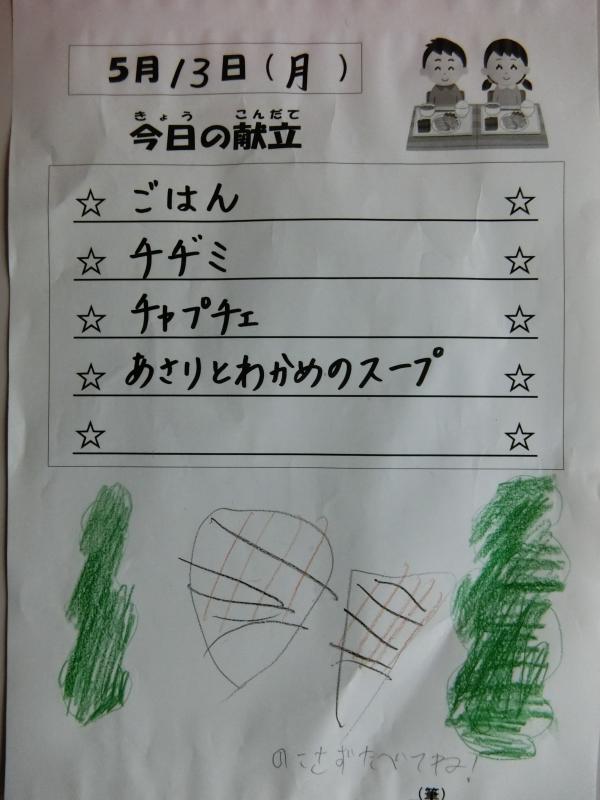 5月13日(月)
きょう こんだて
今日の献立
☆ ごはん ☆
☆ チヂミ ☆
☆ チャプチェ ☆
☆ あさりとわかめのスープ ☆
☆ ☆
のこさずたべてね!
(筆)